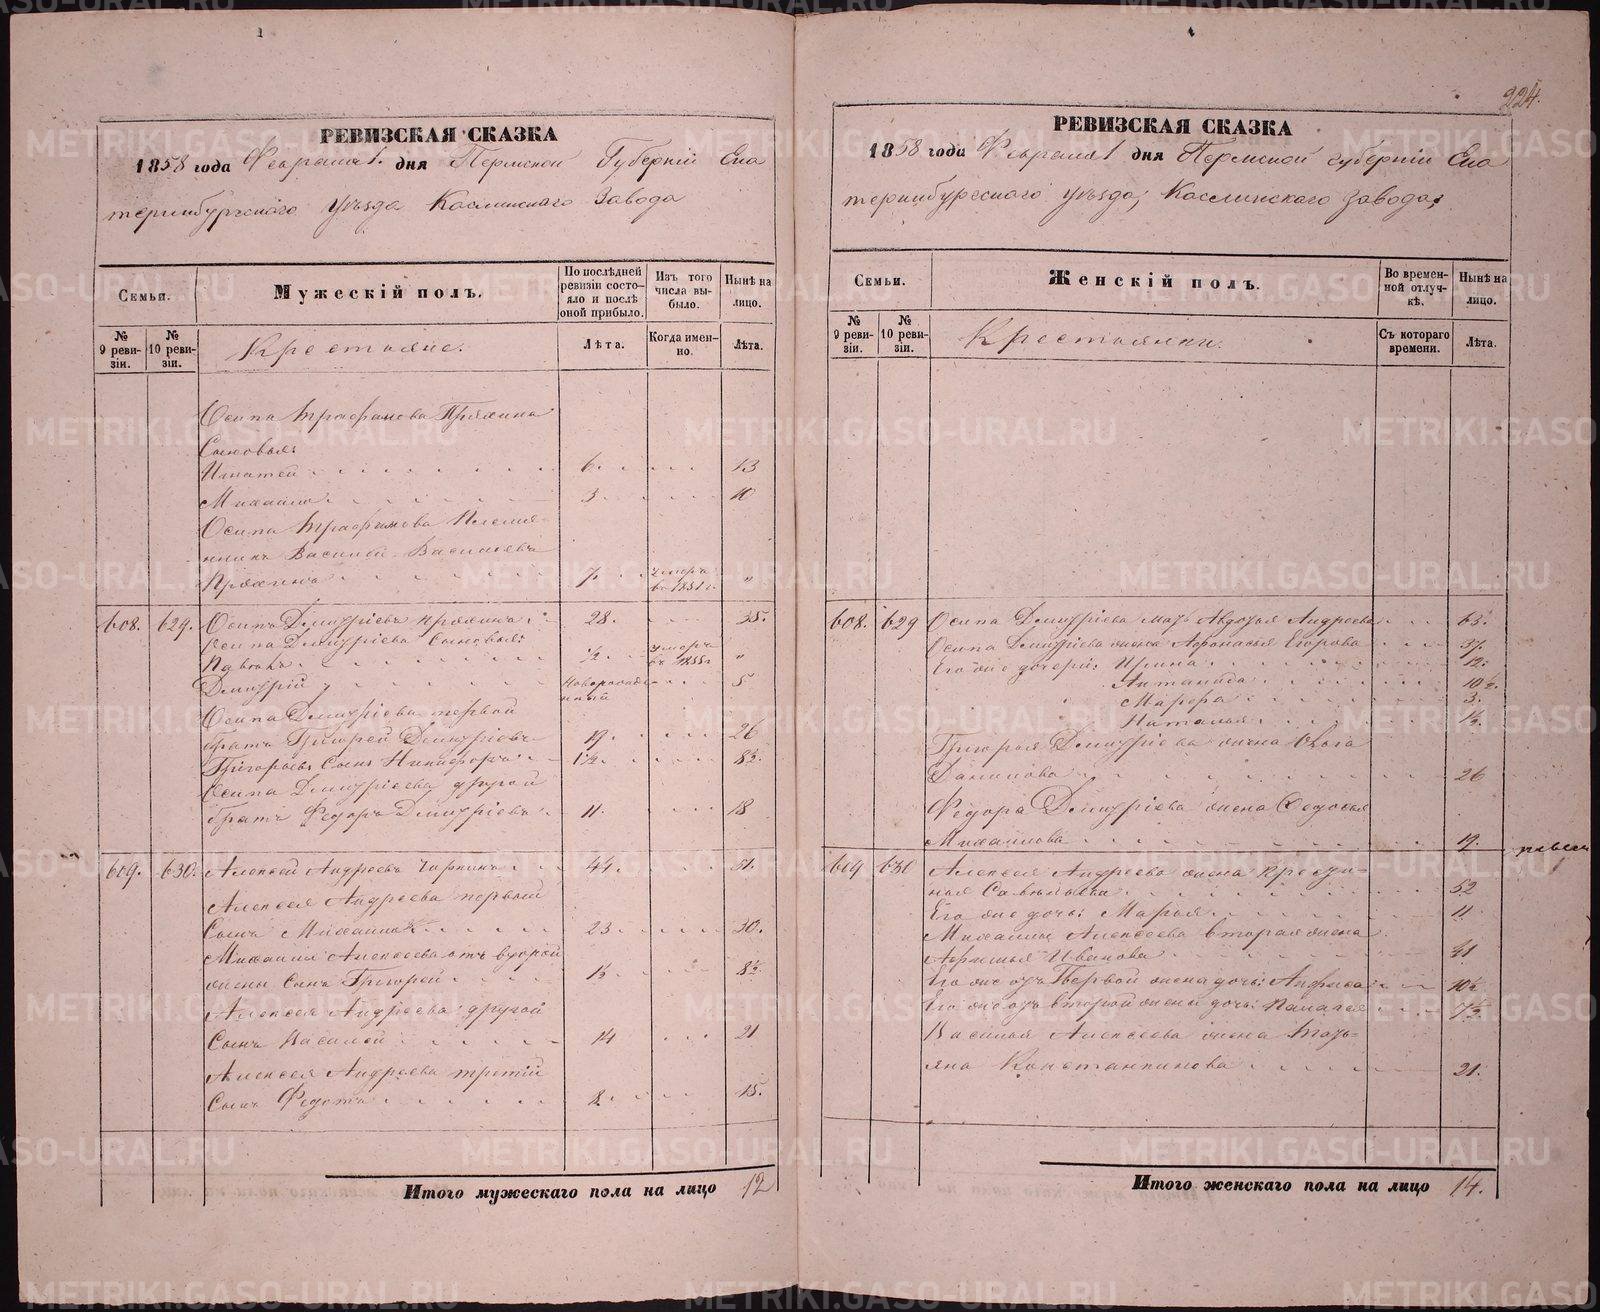 РЕВИЗСКАЯ СКАЗКА
1858 года Февраля 1. дня Пермской Губерніи Ека
теринбургскаго уѣзда Каслинскаго Завода
Семьи.
Мужескій полъ.
По послѣдней ревизіи состояло и послѣ оной прибыло.
Изъ того числа выбыло.
Нынѣ на лицо.
№ 9 ревизіи.
№ 10 ревизіи.
Крестьяне.
Лѣта.
Когда именно.
Лѣта.
Осипа Трафимова Пряхина
Сыновья:
Игнатей 6. 13
Михайло 3. 10
Осипа Трафимова Племян-
никъ Василей Васильевъ
Пряхинъ 7. умеръ въ 1851 г. "
608. 629. Осипъ Дмитріевъ Пряхинъ 28. 35.
Осипа Дмитріева Сыновья:
1/2 умеръ въ 1855 г "
Дмитрій Новорожденный 5
Осипа Дмитріева первой
братъ Григорей Дмитріевъ 19. 26
Григорьевъ Сынъ Никифоръ 1 1/2. 8 1/2.
Осипа Дмитріева другой
братъ Федоръ Дмитріевъ 11 18
609. 630. Алексей Андреевъ 44. 51.
Алексея Андреева первый
Сынъ Михайло 23. 30.
Михаила Алексеева отъ второй
жены Сынъ Григорей 1 1/2 8 1/2
Алексея Андреева другой
Сынъ Василей 14 21
Алексея Андреева третій
Сынъ Федотъ 8. 15.
Итого мужескаго пола на лицо 12
224.
РЕВИЗСКАЯ СКАЗКА
1858 года Февраля 1 дня Пермской губерніи Ека
теринбургскаго уѣзда, Каслинскаго завода;
Семьи.
Женскій полъ.
Во временной отлучкѣ.
Нынѣ на лицо.
№ 9 ревизіи.
№ 10 ревизіи.
Крестьянки.
Съ котораго времени.
Лѣта.
608. 629 Осипа Дмитріева мать Авдотья Андреева 63.
Осипа Дмитріева жена Афонасья Егорова 37.
Его же дочери: Ирина 12.
10 1/2.
Марфа 3.
Наталья 1 1/2.
Григорья Дмитріева жена Ольга
Данилова 26
Федора Дмитріева жена Федосья
Михайлова 19.
609 630 Алексея Андреева жена Крести-
нья Савельева 52
Его же дочь: Марья 11
Михаилы Алексеева вторая жена
Афимья Иванова 41
Его же отъ Первой жены дочь: Анфиса 10 1/2
Его же отъ второй жены дочь: Палагея 7 1/2
Василья Алексеева жена Тать-
яна Константинова 21.
Итого женскаго пола на лицо 14.
METRIKI.GASO-URAL.RU